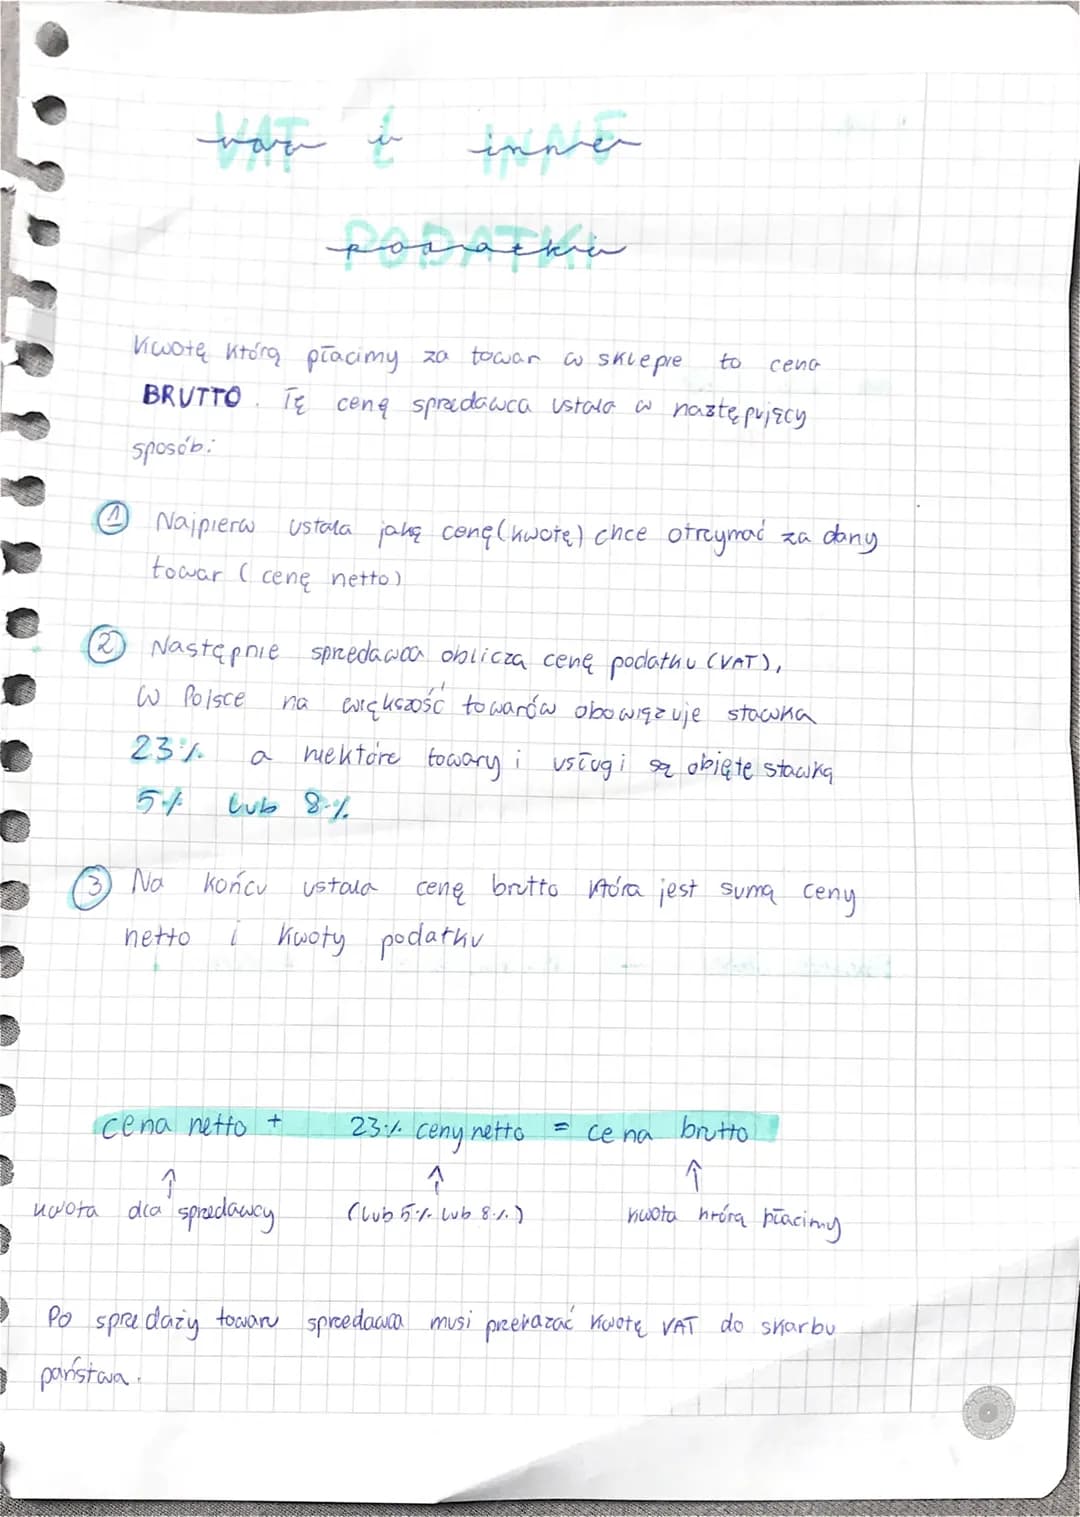 VAT i INNE
vat i inne
PODATKI
podatki
Kwotę którą płacimy za towar w sklepie to cena
BRUTTO. Tę cenę sprzedawca ustala w następujący
sposób:
① Najpierw ustala jaką cenę (kwotę) chce otrzymać za dany
towar (cenę netto)
② Następnie sprzedawca oblicza cenę podatku (VAT),
W Polsce na większość towarów obowiązuje stawka
23% a niektóre towary i usługi są objęte stawką
5% lub 8%
③ Na końcu ustala cenę brutto która jest sumą ceny
netto i kwoty podatku
cena netto + 23% ceny netto = cena brutto
↑ ↑ ↑
kwota dla sprzedawcy (lub 5% lub 8%) kwota którą płacimy
Po spredaży towaru sprzedawca musi przekazać kwotę VAT do skarbu
państwa.